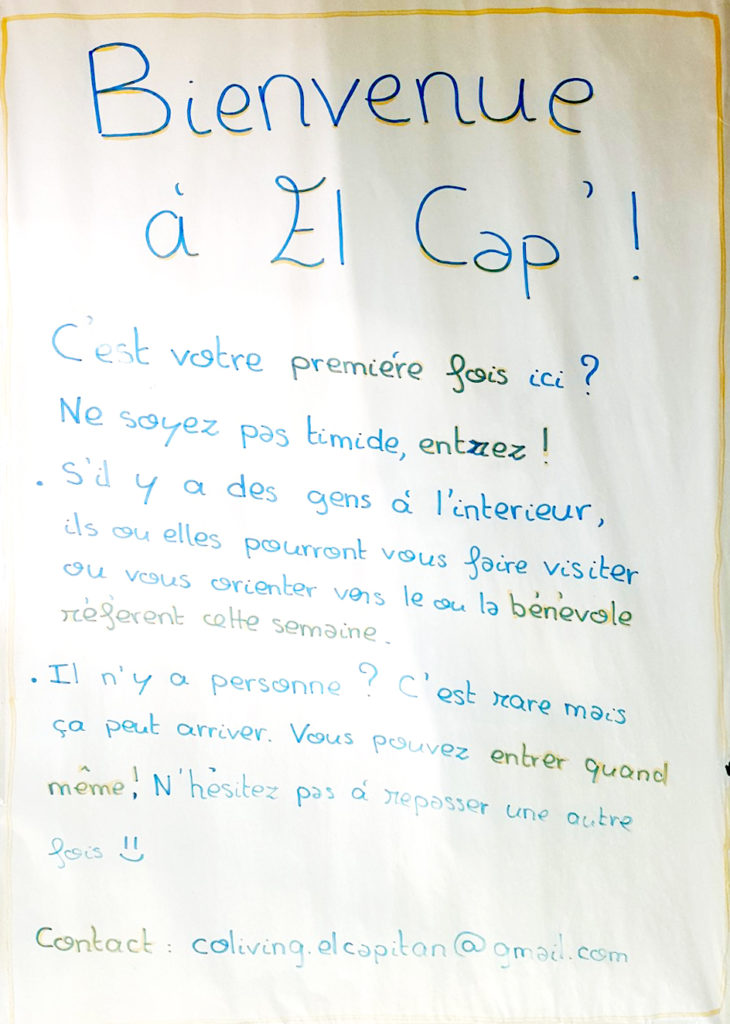 Bienvenue
à El Cap' !
C'est votre première fois ici ?
Ne soyez pas timide, entrez !
. S'il y a des gens à l'interieur,
ils ou elles pourront vous faire visiter
ou vous orienter vers le ou la bénévole
réferent cette semaine.
. Il n'y a personne ? C'est rare mais
ça peut arriver. Vous pouvez entrer quand
même! N'hésitez pas à repasser une autre
fois :)
Contact : coliving.elcapitan@gmail.com